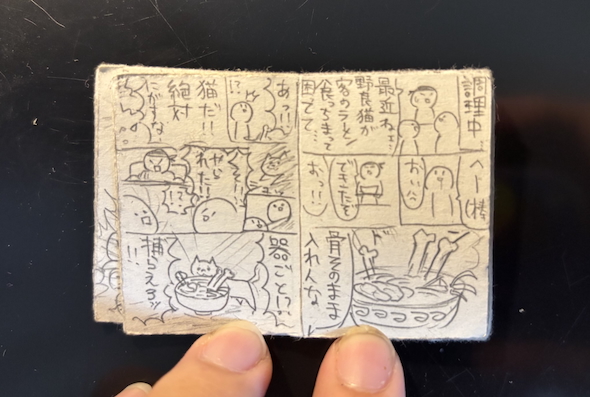 調理中…
最近ねぇ…
野良猫が
客のラーメン
食っちまって
困ってて…
へー(棒
おぃ!!
できたぞ
おっ!!
ドドド
骨そのまま
入れんな
あっ!!
!?
猫だ!!
絶対
にがすな!
やら
れた!!
!?
器ごと!?
捕らえろッ
!!